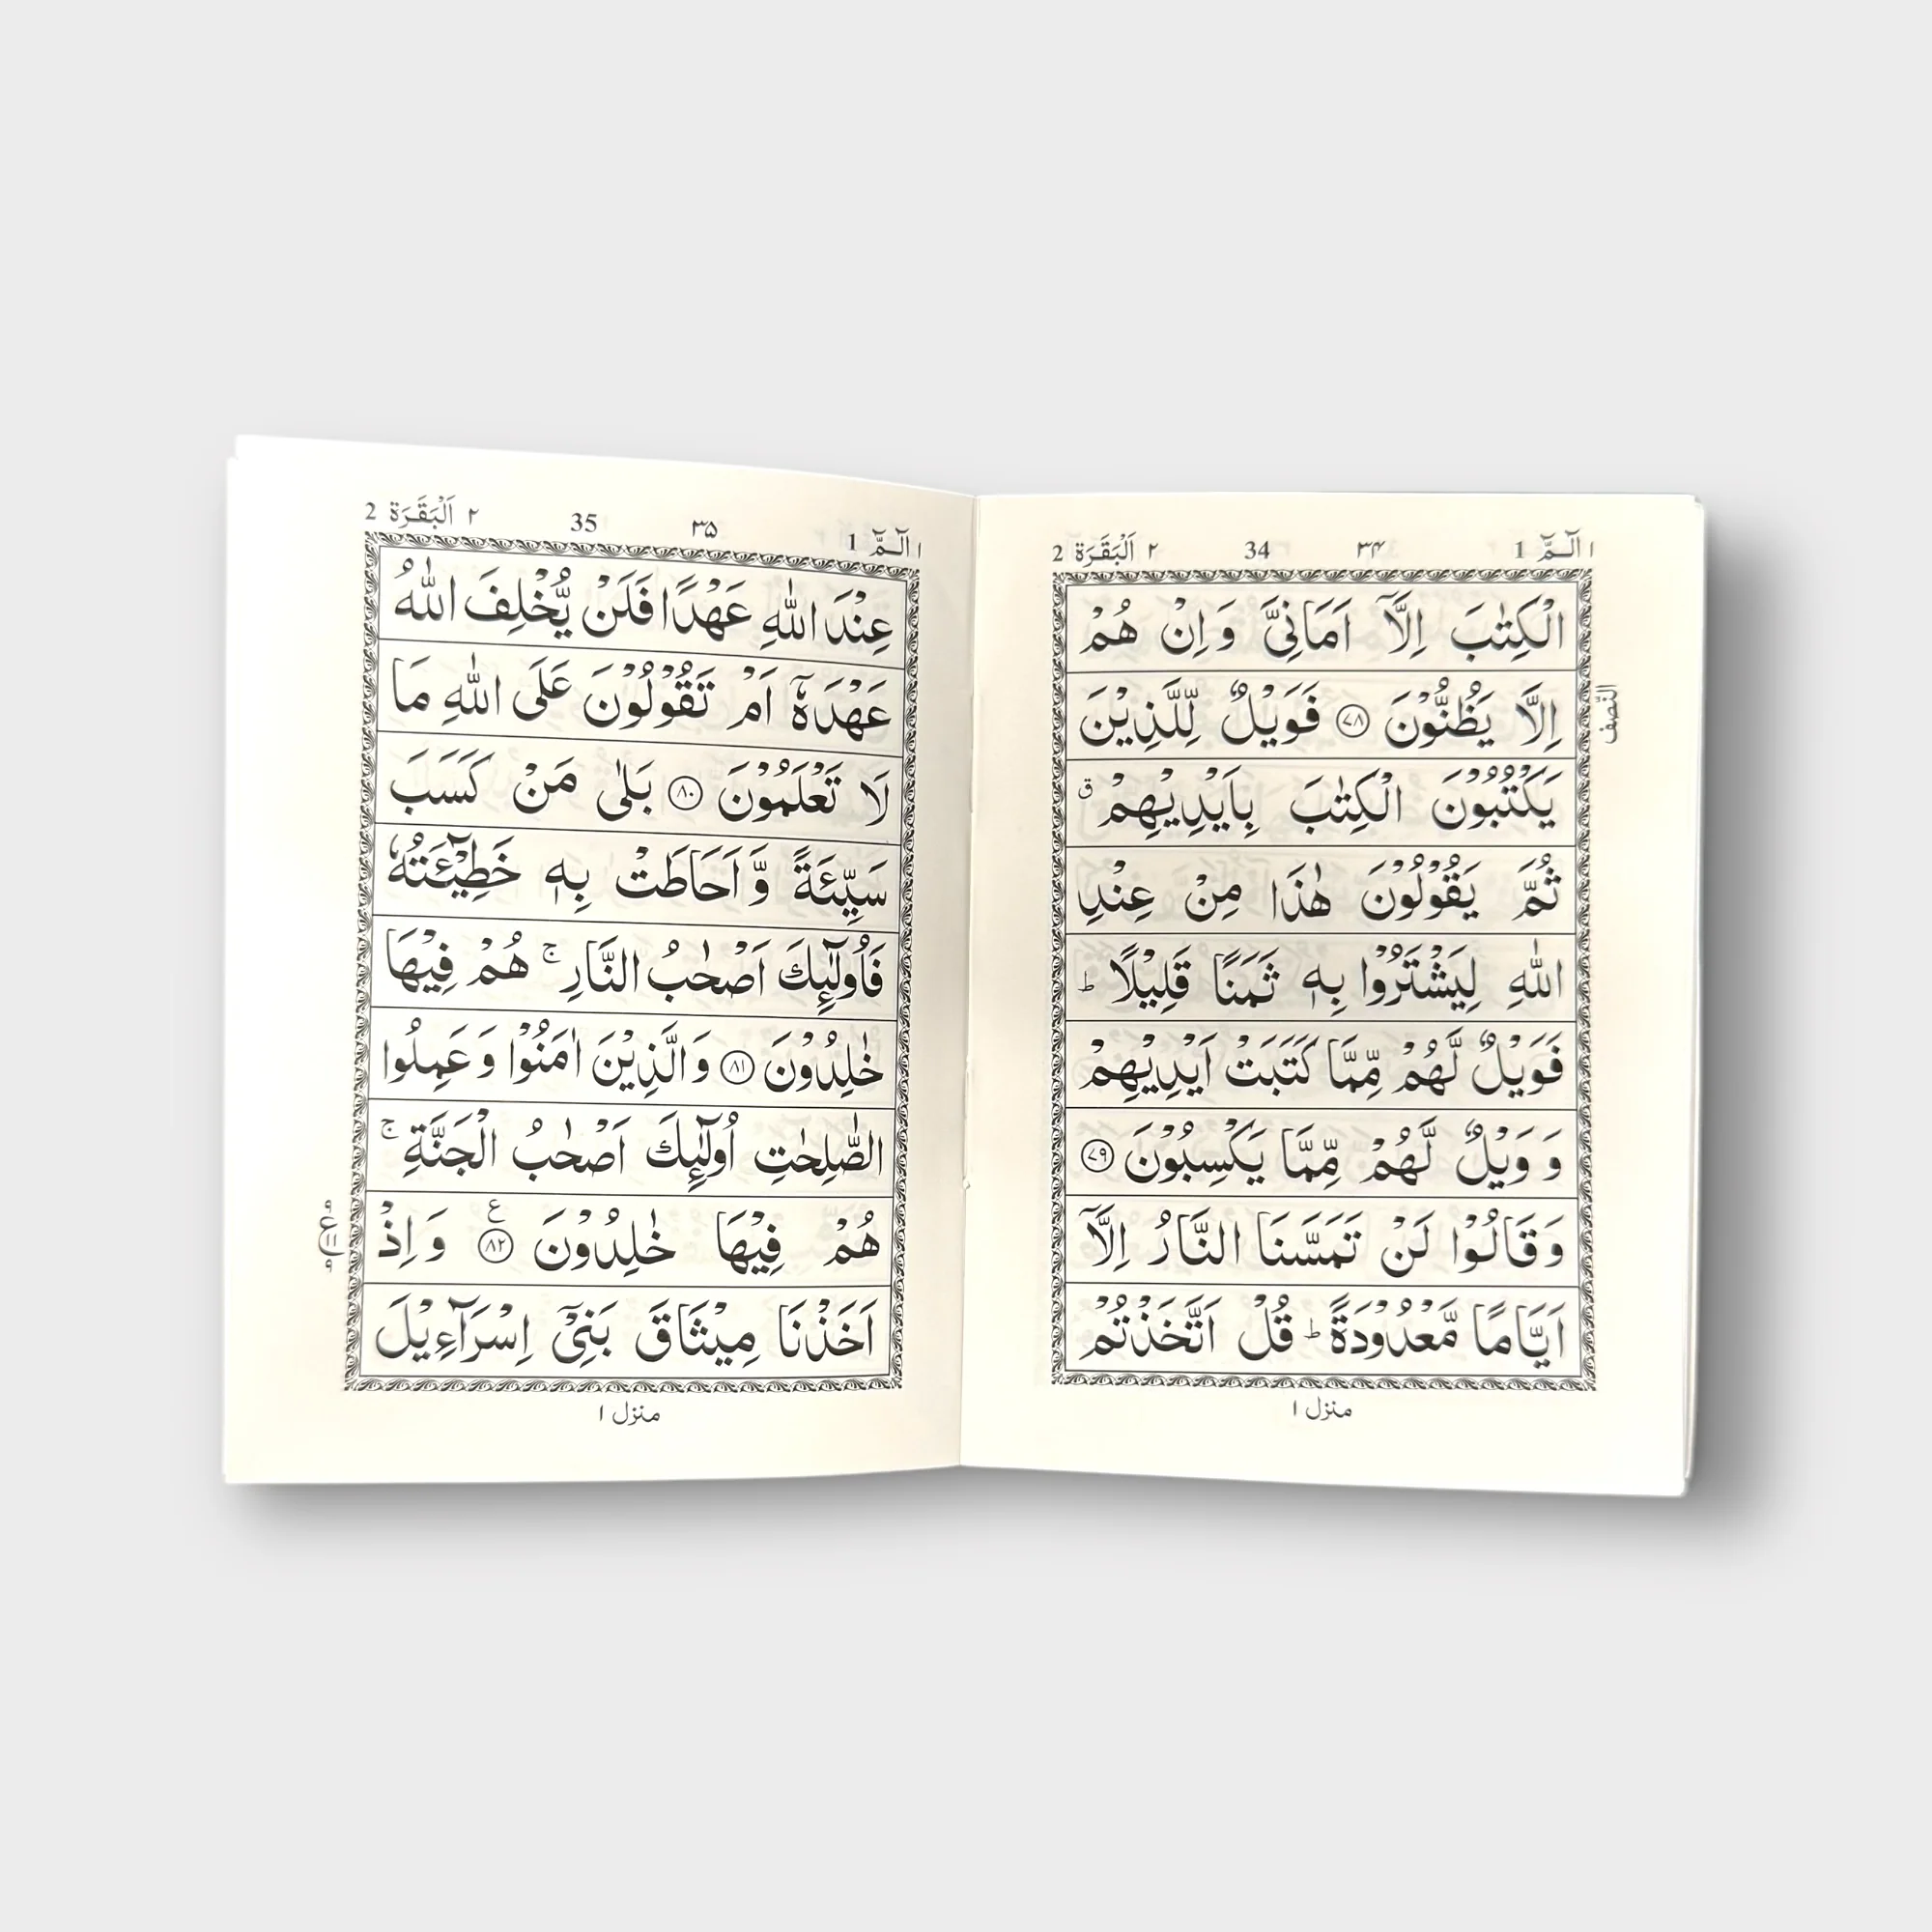 ١ الٓمّٓ 1 ٣۴ 34 ٢ اَلْبَقَرَة 2
الْكِتٰبَ اِلَّاۤ اَمَانِیَّ وَ اِنْ هُمْ
اِلَّا یَظُنُّوْنَ ﴿۷۸﴾ فَوَیْلٌ لِّلَّذِیْنَ
النّصف
یَكْتُبُوْنَ الْكِتٰبَ بِاَیْدِیْهِمْ ۗق
ثُمَّ یَقُوْلُوْنَ هٰذَا مِنْ عِنْدِ
اللّٰهِ لِیَشْتَرُوْا بِهٖ ثَمَنًا قَلِیْلًا ؕ
فَوَیْلٌ لَّهُمْ مِّمَّا كَتَبَتْ اَیْدِیْهِمْ
وَ وَیْلٌ لَّهُمْ مِّمَّا یَكْسِبُوْنَ ﴿۷۹﴾
وَ قَالُوْا لَنْ تَمَسَّنَا النَّارُ اِلَّاۤ
اَیَّامًا مَّعْدُوْدَةً ؕ قُلْ اَتَّخَذْتُمْ
منزل ١
١ الٓمّٓ 1 ٣۵ 35 ٢ اَلْبَقَرَة 2
عِنْدَ اللّٰهِ عَهْدًا فَلَنْ یُّخْلِفَ اللّٰهُ
عَهْدَهٗۤ اَمْ تَقُوْلُوْنَ عَلَی اللّٰهِ مَا
لَا تَعْلَمُوْنَ ﴿۸۰﴾ بَلٰی مَنْ كَسَبَ
سَیِّئَةً وَّ اَحَاطَتْ بِهٖ خَطِیْٓـَٔتُهٗ
فَاُولٰٓئِكَ اَصْحٰبُ النَّارِ ۚ هُمْ فِیْهَا
خٰلِدُوْنَ ﴿۸۱﴾ وَ الَّذِیْنَ اٰمَنُوْا وَ عَمِلُوا
الصّٰلِحٰتِ اُولٰٓئِكَ اَصْحٰبُ الْجَنَّةِ ۚ
هُمْ فِیْهَا خٰلِدُوْنَ ﴿۸۲﴾ ع وَ اِذْ
اَخَذْنَا مِیْثَاقَ بَنِیْۤ اِسْرَآءِیْلَ
منزل ١